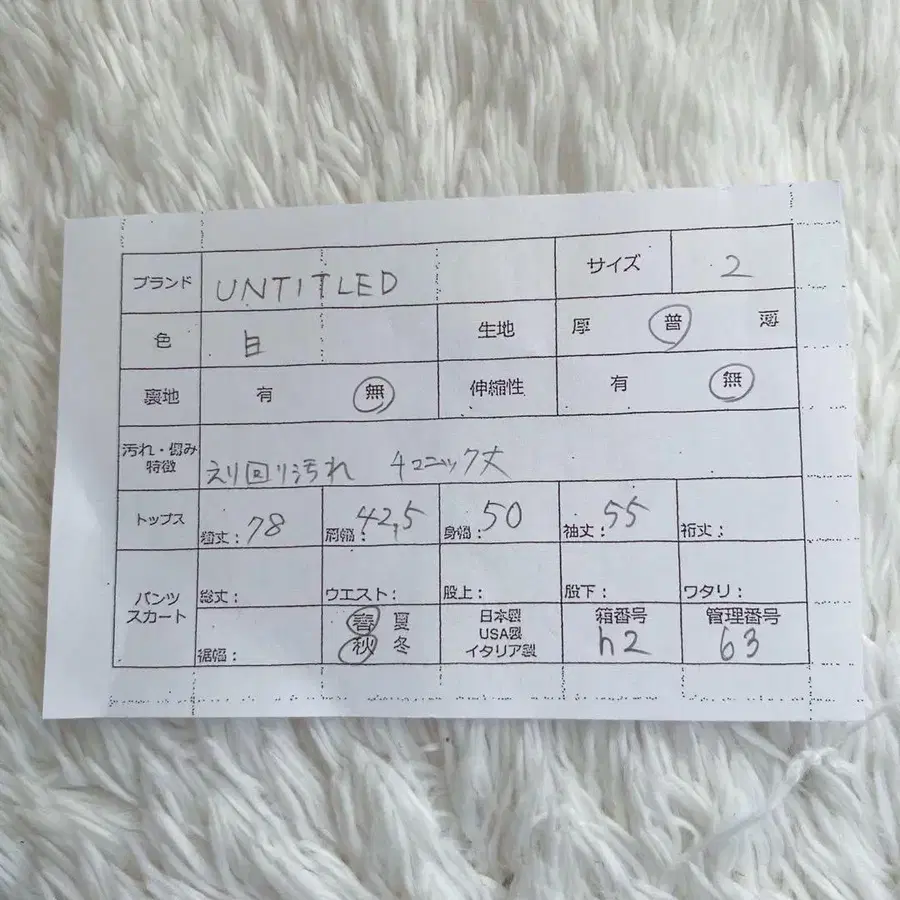 ブランド UNTITLED サイズ 2
色 白 生地 厚 普 薄
裏地 有 無 伸縮性 有 無
汚れ・傷み
特徴 えり回り汚れ チュニック丈
トップス 着丈:78 肩幅:42,5 身幅:50 袖丈:55 裄丈:
パンツ
スカート 総丈: ウエスト: 股上: 股下: ワタリ:
裾幅: 春 夏 秋 冬 日本製 USA製 イタリア製 箱番号 h2 管理番号 63